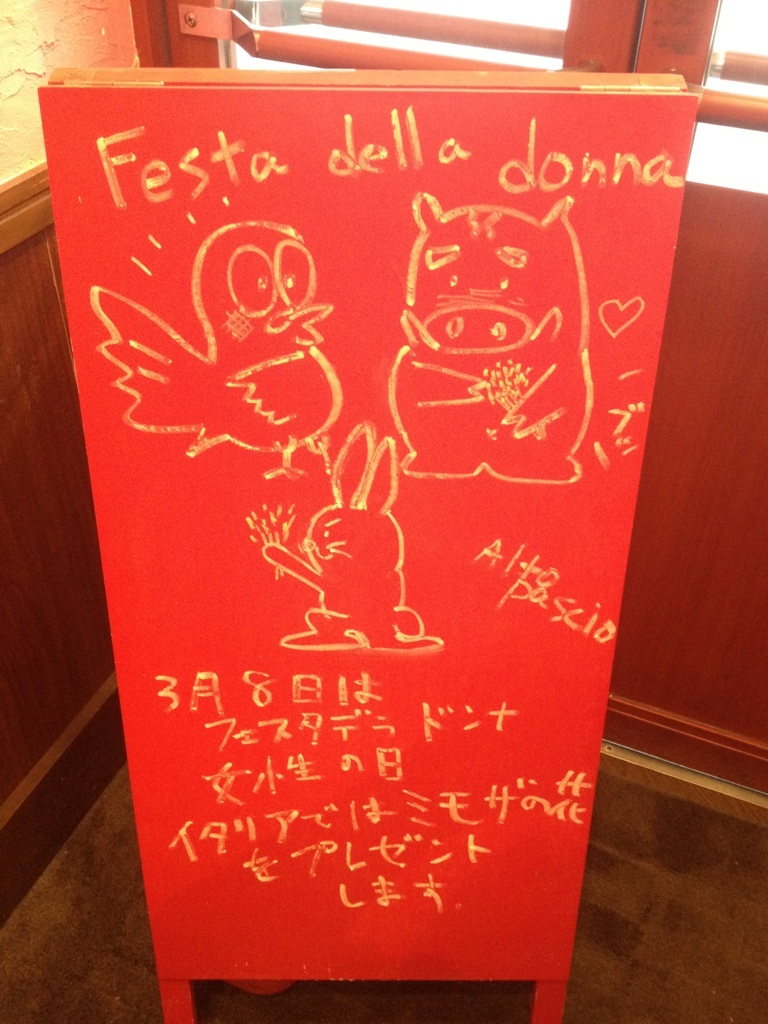 Festa della donna
Alto
pascio
3月8日は
フェスタデラ ドンナ
女性の日
イタリアではミモザの花
をプレゼント
します.